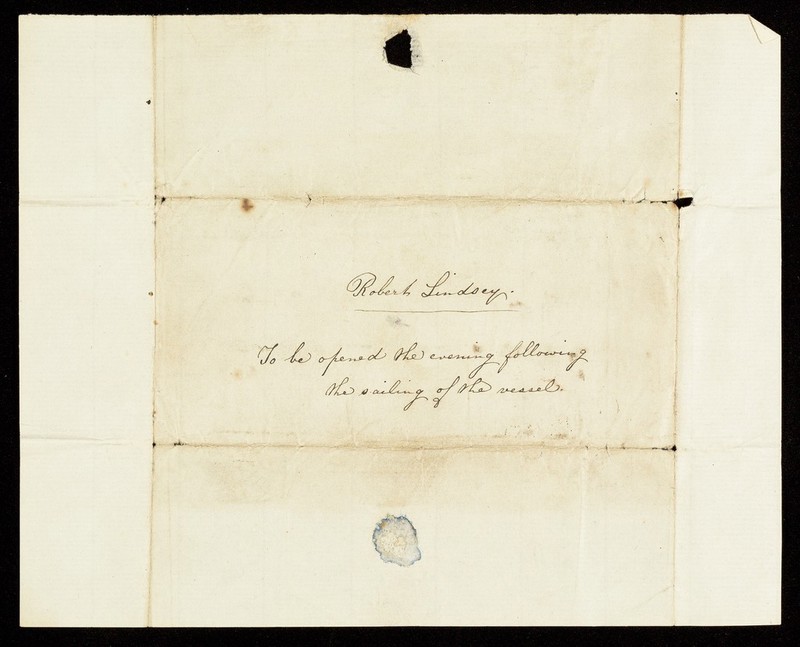 Robert Lindsey.
To be opened the evening following
the sailing of the vessel.